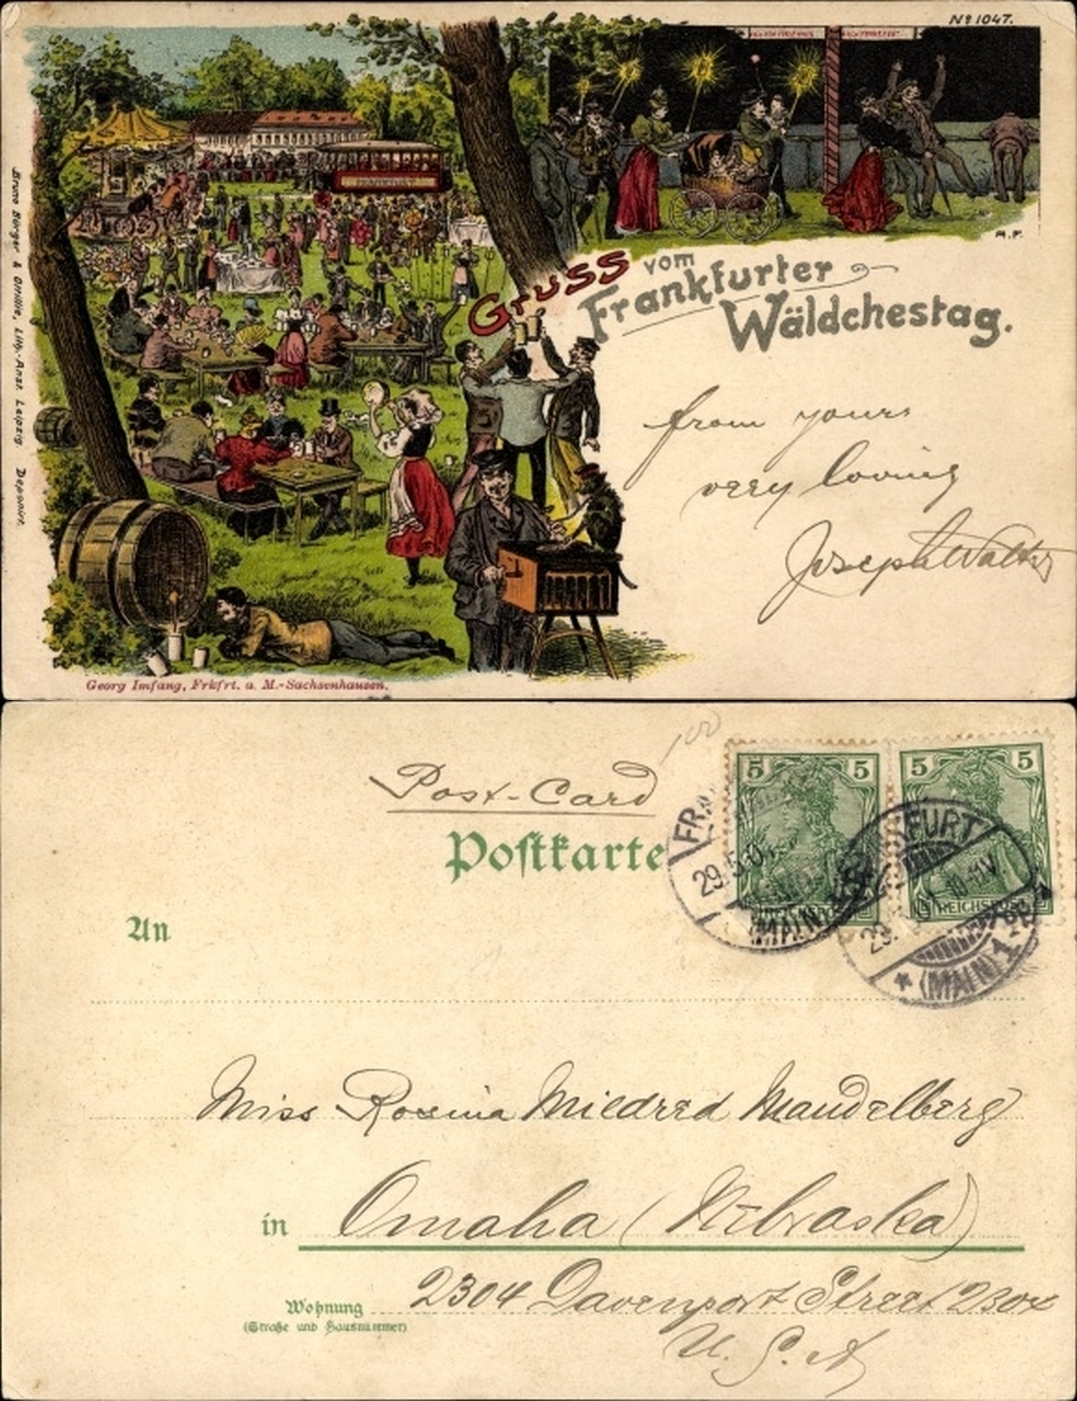 No 1047.
FRANKFURT
M.F.
Gruss vom
Frankfurter
Wäldchestag.
from yours
very loving
Joseph Walter
Bruno Bürger & Ottillie, Lith.-Anst. Leipzig. Deponirt.
Georg Imfang, Frkfrt. a. M.-Sachsenhausen.
100
Post-Card
Postkarte
5 5 5 5
REICHSPOST REICHSPOST
FR
29.5.0
(MAIN)
FURT
29.
10-11V
* (MAIN) 1
An
Miss Rosina Mildred Mandelberg
in Omaha (Nebraska)
Wohnung 2304 Davenport Street 2304
(Straße und Hausnummer)
U. S. A.